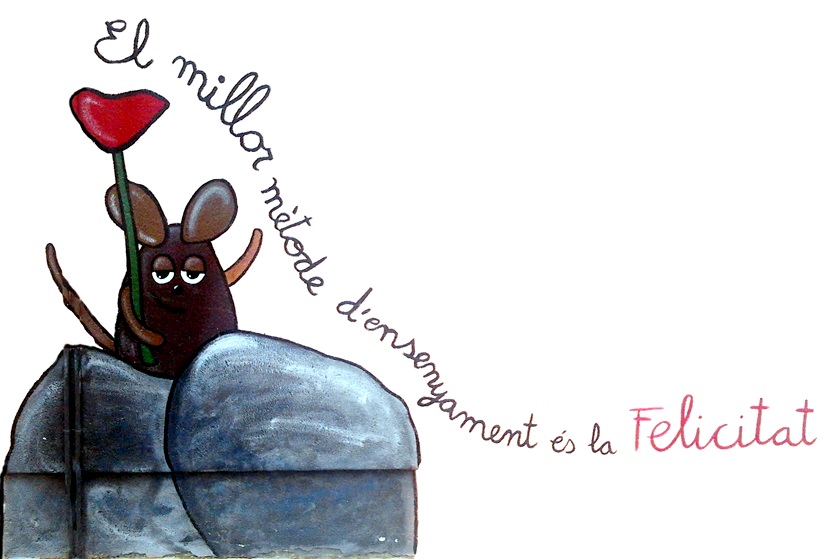 El millor mètode d'ensenyament és la Felicitat